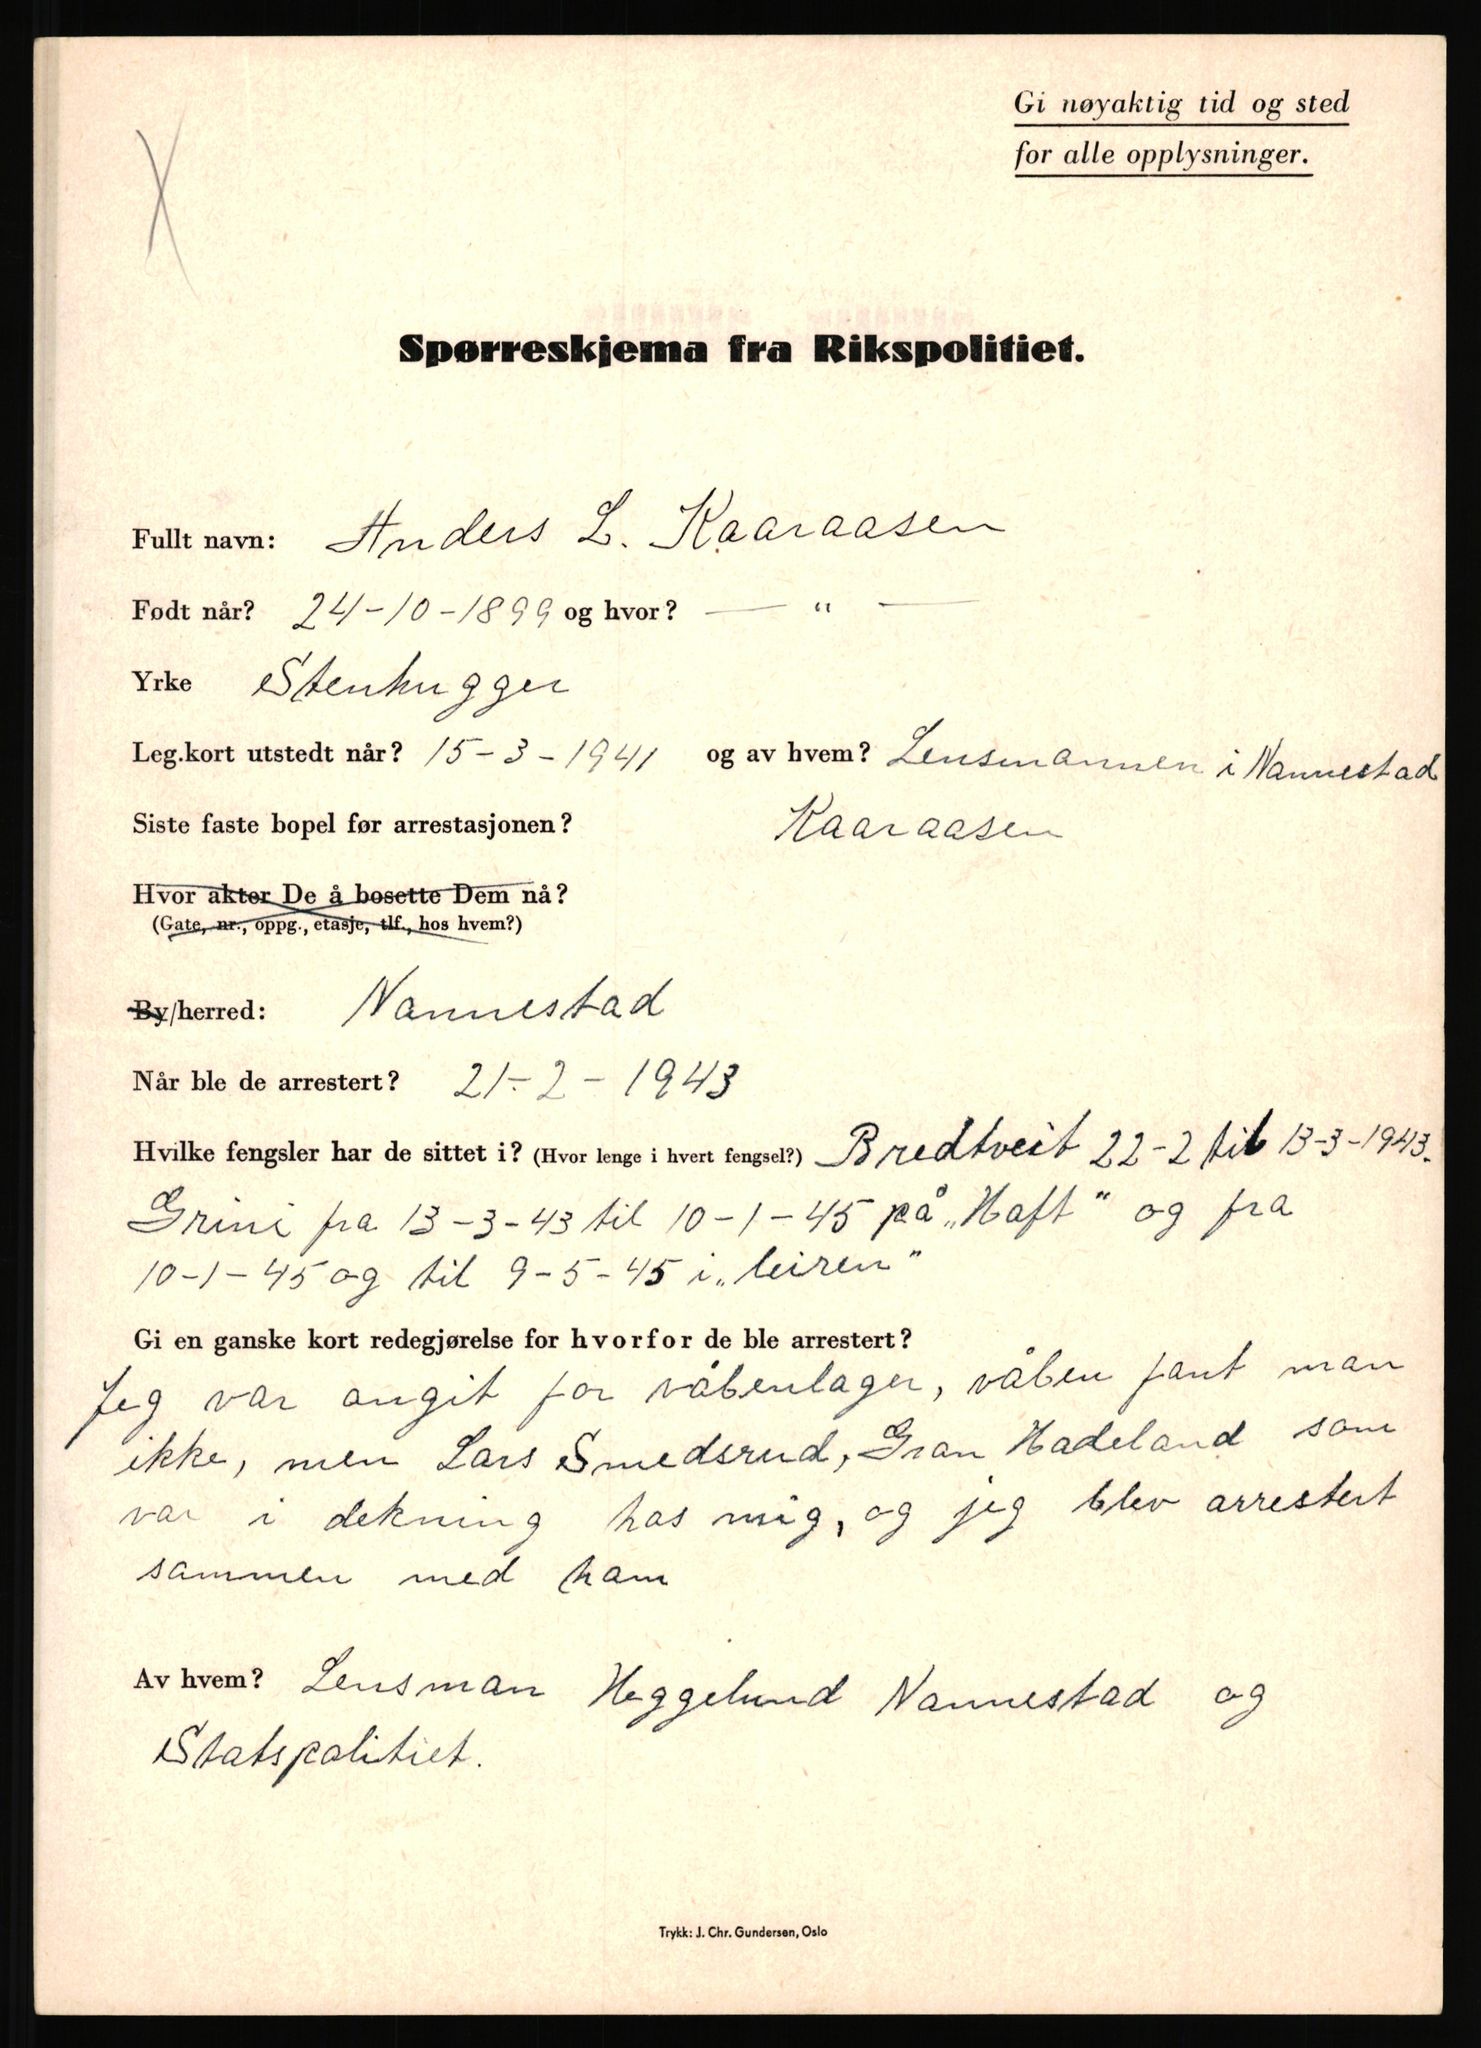 Gi nøyaktig tid og sted
for alle opplysninger.
Spørreskjema fra Rikspolitiet.
Fullt navn: Anders L. Kaaraasen
Født når? 24-10-1899 og hvor? — " —
Yrke Stenhugger
Leg.kort utstedt når? 15-3-1941 og av hvem? Lensmannen i Nannestad
Siste faste bopel før arrestasjonen? Kaaraasen
Hvor akter De å bosette Dem nå?
(Gate, nr., oppg., etasje, tlf., hos hvem?)
By/herred: Nannestad
Når ble de arrestert? 21-2-1943
Hvilke fengsler har de sittet i? (Hvor lenge i hvert fengsel?) Bredtveit 22-2 til 13-3-1943.
Grini fra 13-3-43 til 10-1-45 på „Haft" og fra
10-1-45 og til 9-5-45 i „leiren"
Gi en ganske kort redegjørelse for hvorfor de ble arrestert?
Jeg var angit for våbenlager, våben fant man
ikke, men Lars Smedsrud, Gran Hadeland som
var i dekning hos mig, og jeg blev arrestert
sammen med ham
Av hvem? Lensman Heggelund Nannestad og
Statspolitiet.
Trykk: J. Chr. Gundersen, Oslo